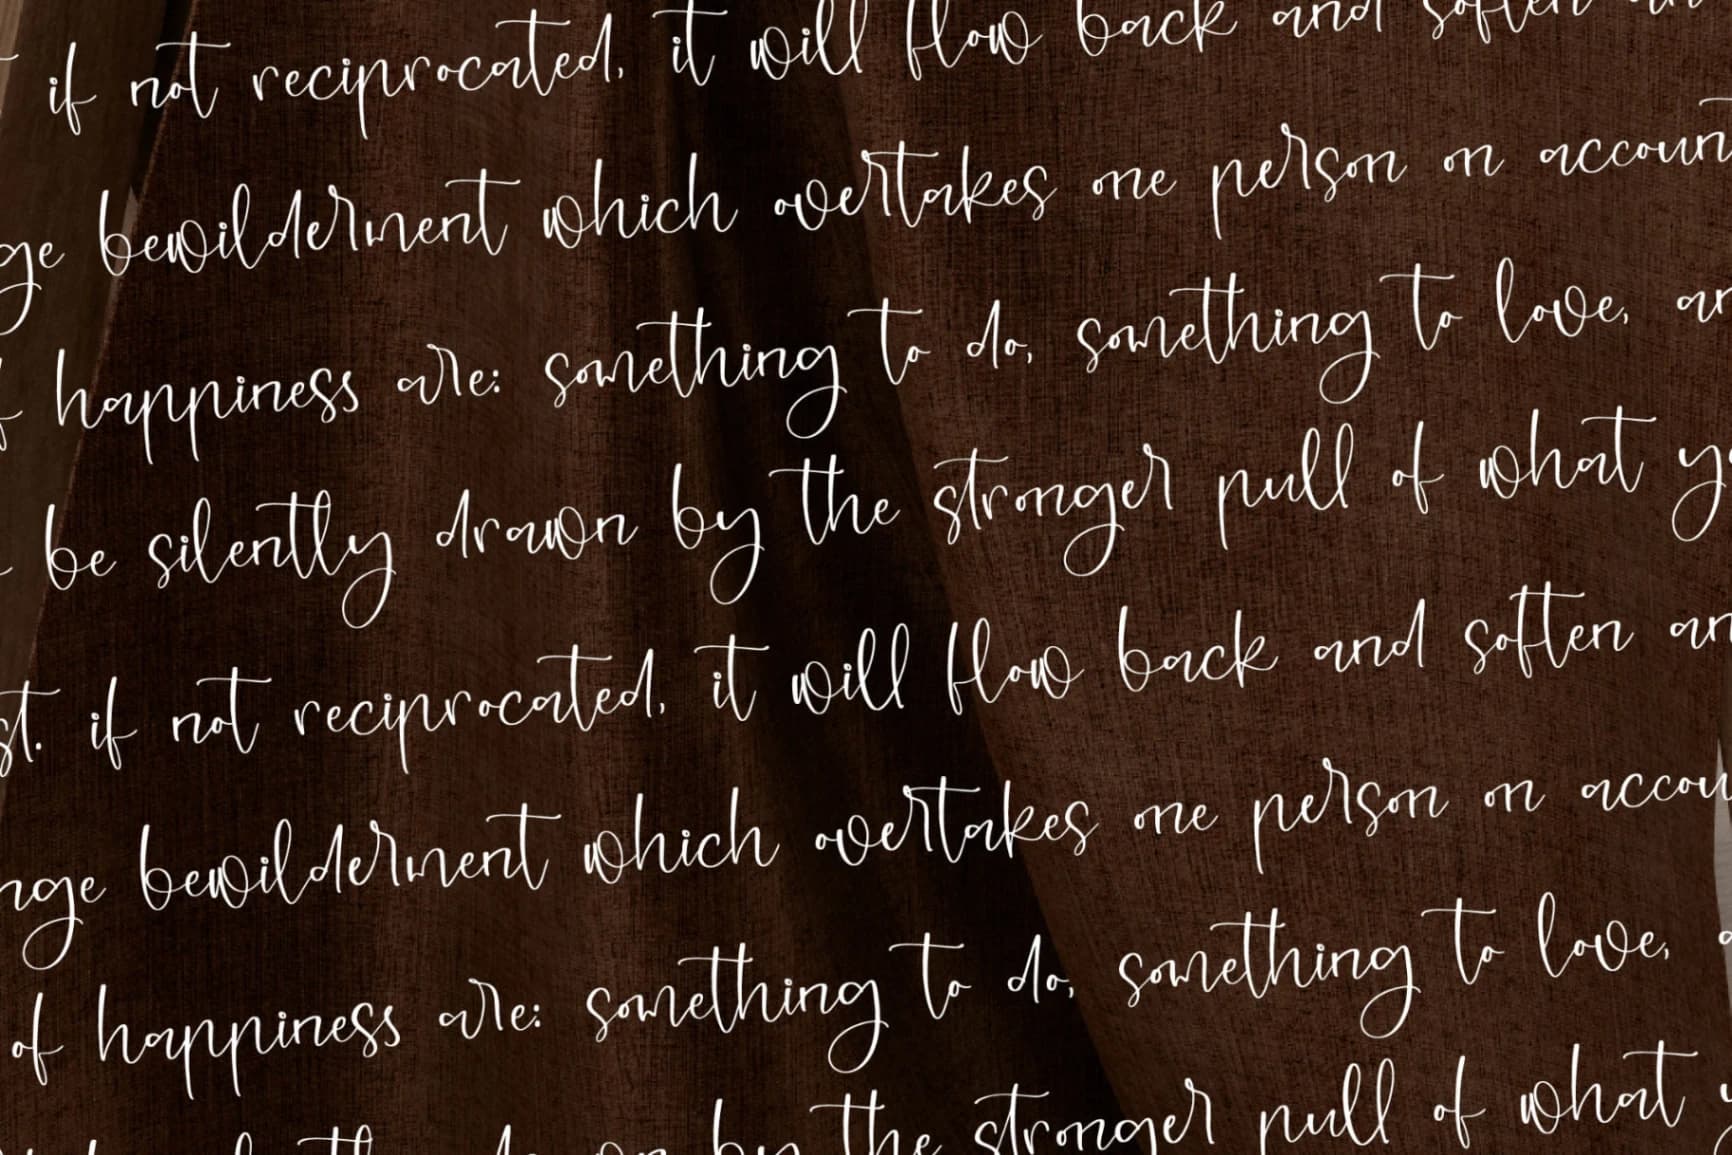 if not reciprocated, it will flow back and soften an
ge bewilderment which overtakes one person on accoun
happiness are: something to do, something to love, an
be silently drawn by the stronger pull of what yo
st. if not reciprocated, it will flow back and soften an
nge bewilderment which overtakes one person on accou
of happiness are: something to do, something to love,
by the stronger pull of what y